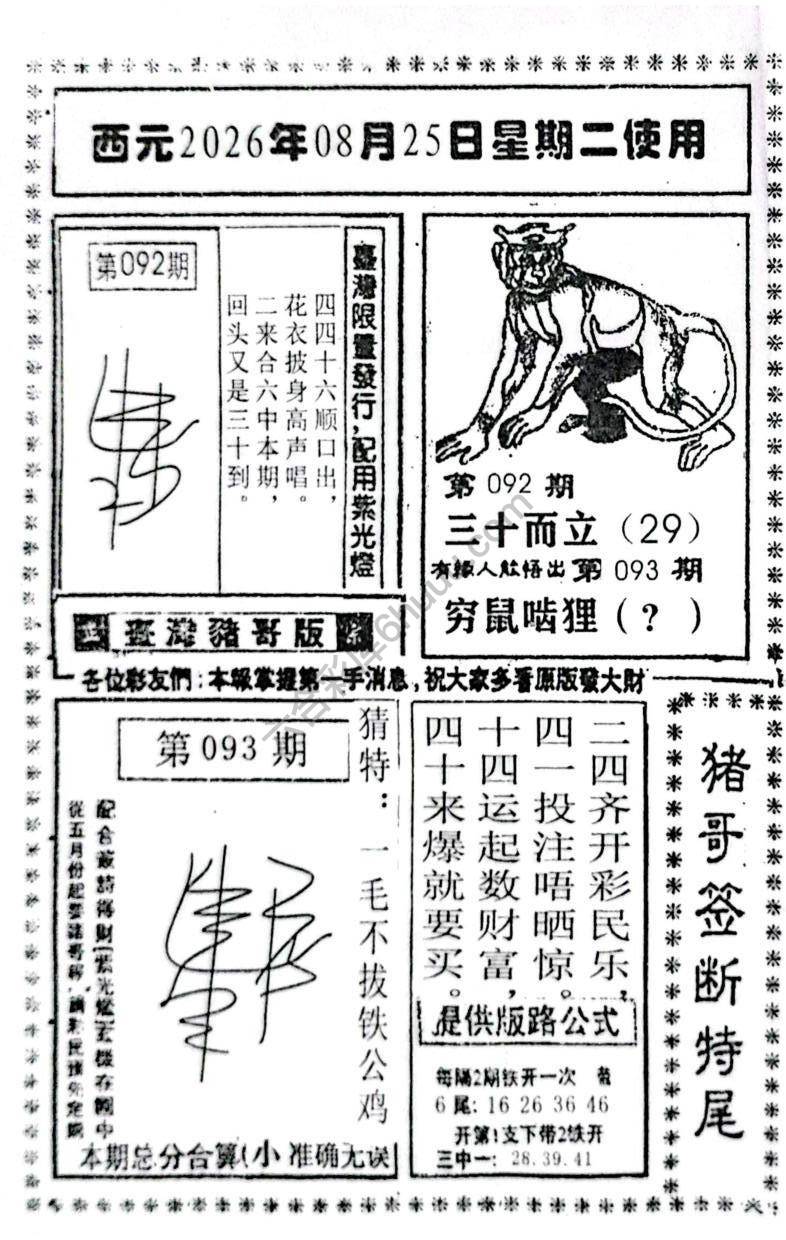 西元2026年08月25日星期二使用
第092期
四四十六顺口出，
花衣披身高声唱。
二来合六中本期，
回头又是三十到。
臺灣限量發行，配用紫光燈
臺灣豬哥版
第 092 期
三十而立（29）
有緣人能悟出第 093 期
穷鼠啮狸（？）
各位彩友們：本報掌握第一手消息，祝大家多看原版發大財
第093期
猜特：一毛不拔铁公鸡
本期总分合算(小 准确无误
二四齐开彩民乐，
四一投注唔晒惊。
十四运起数财富，
四十来爆就要买。
提供版路公式
每隔2期铁开一次
6 尾：16 26 36 46
开第1支下带2铁开
三中一：28.39.41
猪哥签断特尾
六合彩库6huu.com